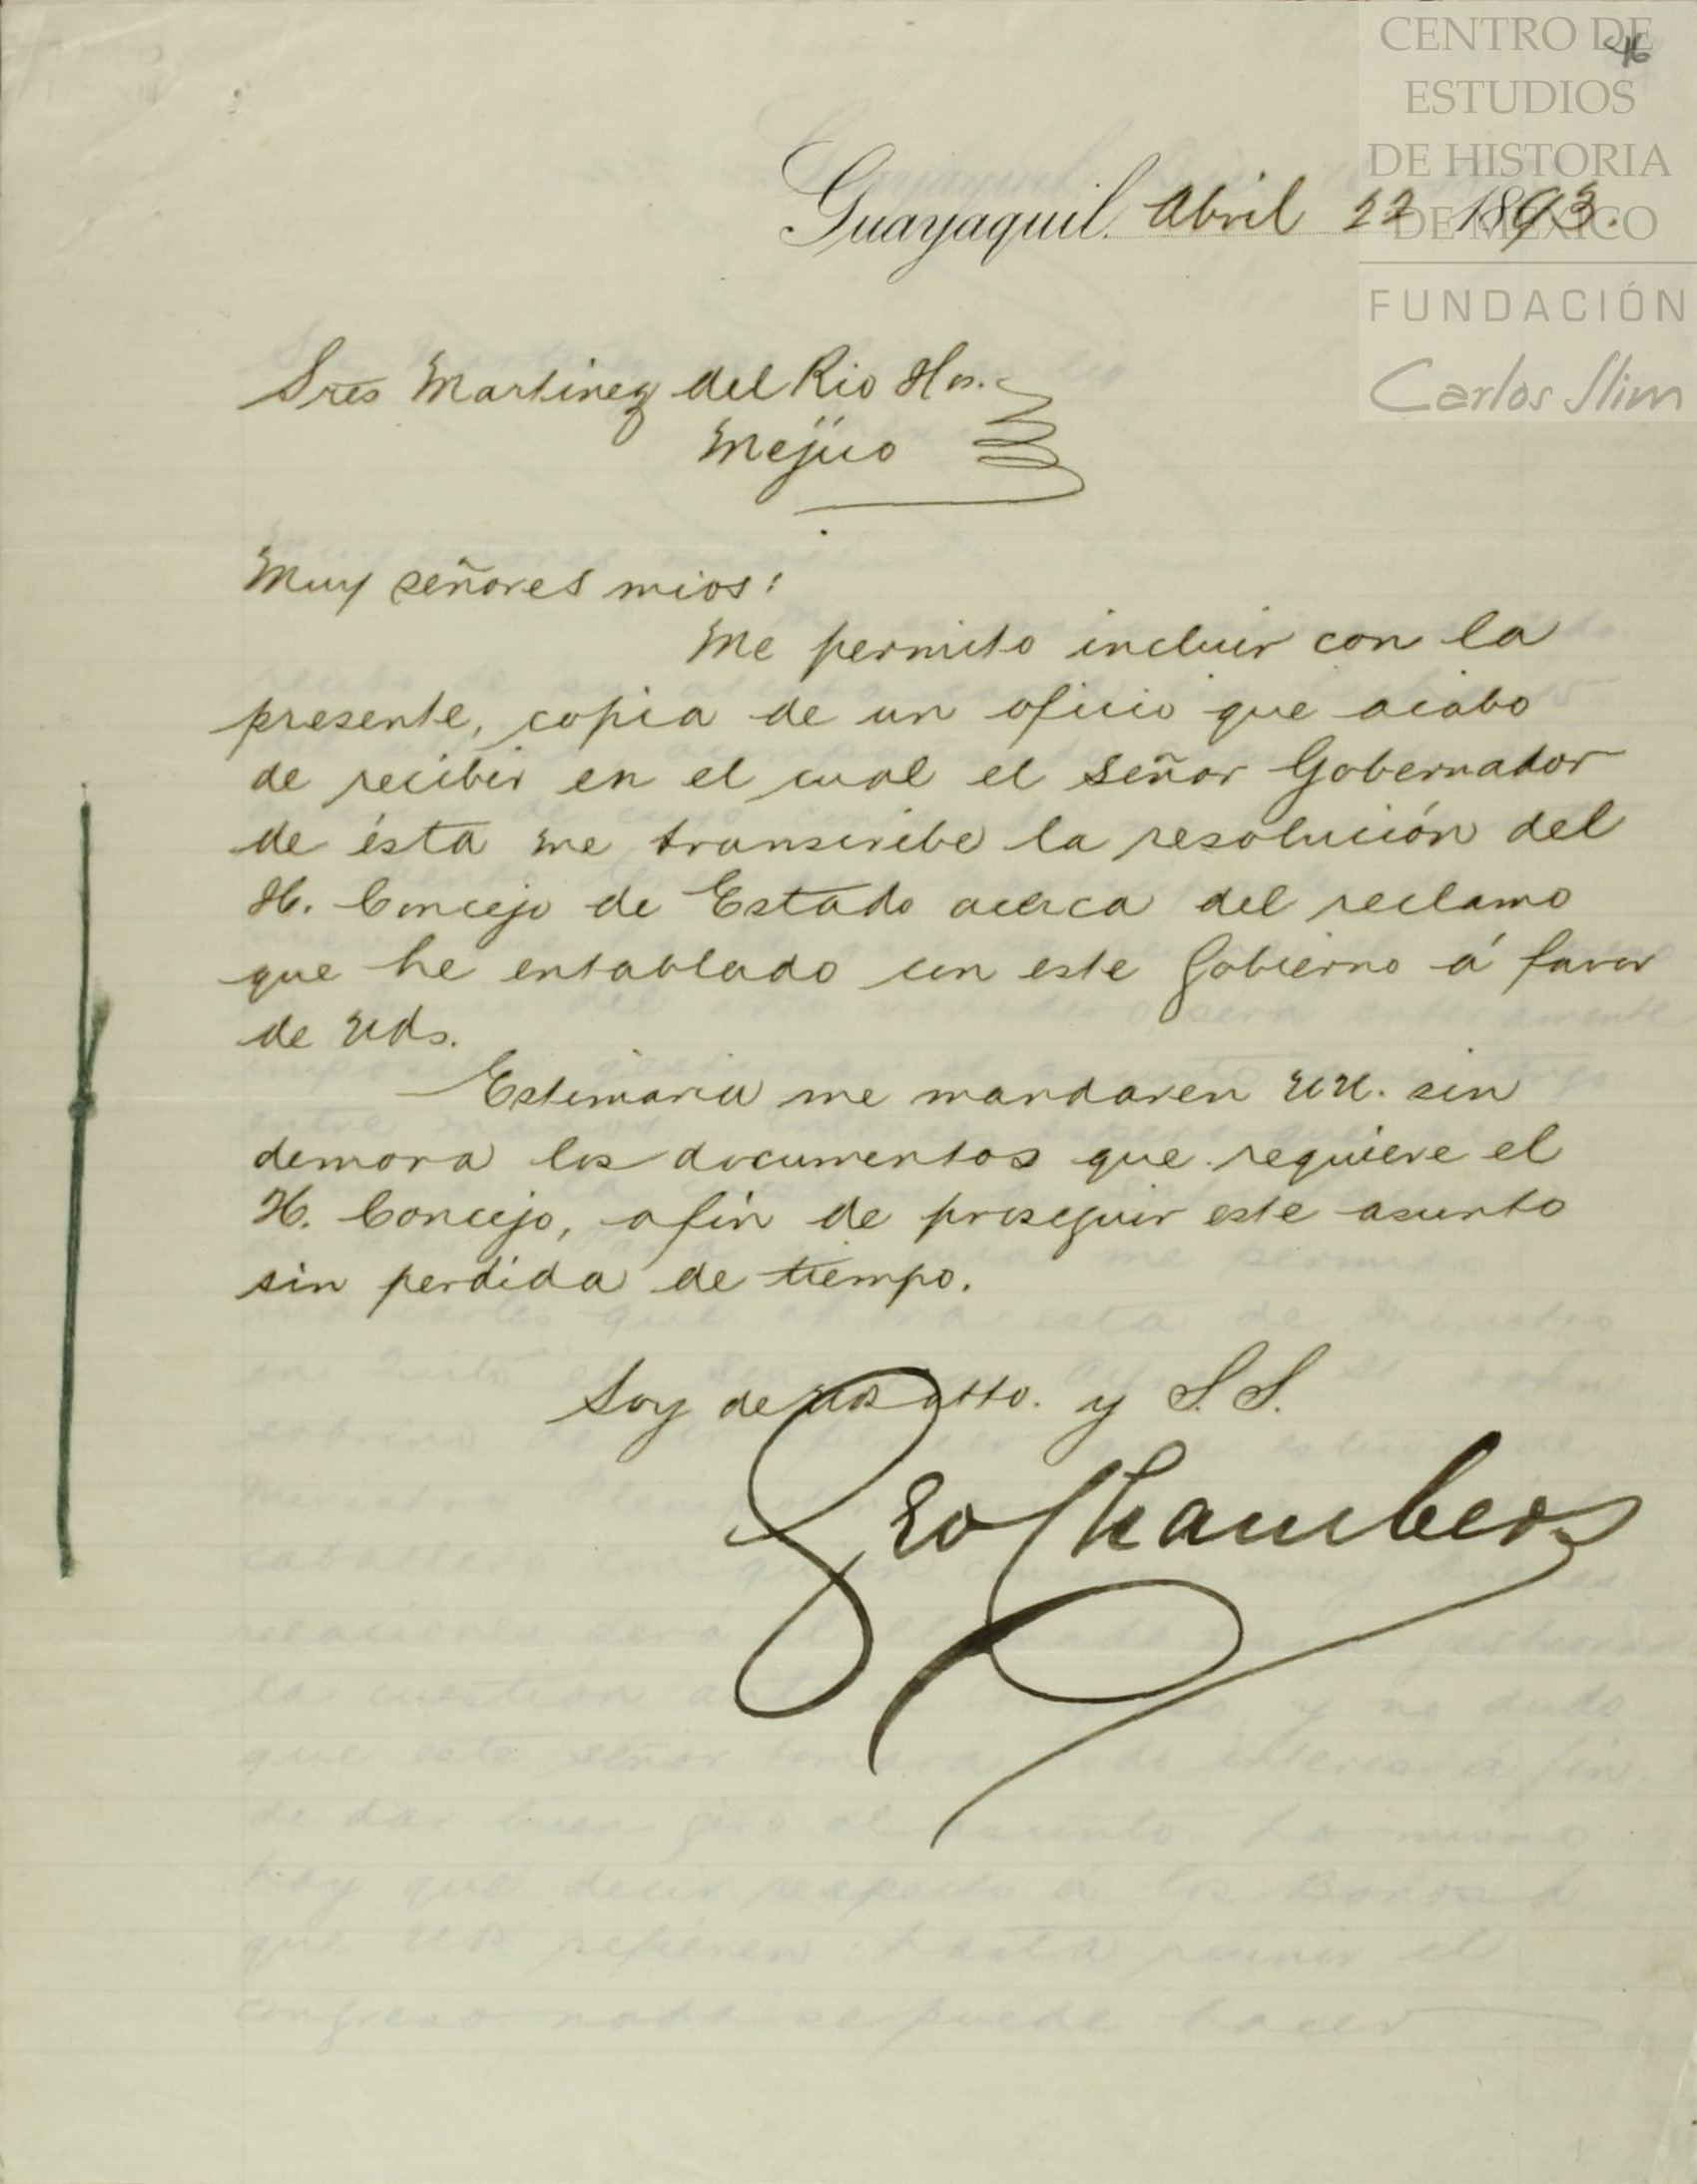 46
CENTRO DE
ESTUDIOS
DE HISTORIA
DE MÉXICO
FUNDACIÓN
Carlos Slim
Guayaquil. Abril 22 1893.
Sres Martinez del Rio Hos.
Mejico
Muy señores mios:
Me permito incluir con la
presente, copia de un oficio que acabo
de recibir en el cual el Señor Gobernador
de ésta me transcribe la resolución del
H. Concejo de Estado acerca del reclamo
que he entablado con este Gobierno á favor
de Uds.
Estimaria me mandaren UU. sin
demora los documentos que requiere el
H. Concejo, afin de proseguir este asunto
sin perdida de tiempo.
Soy de Uds atto. y S. S.
Geo Chambers